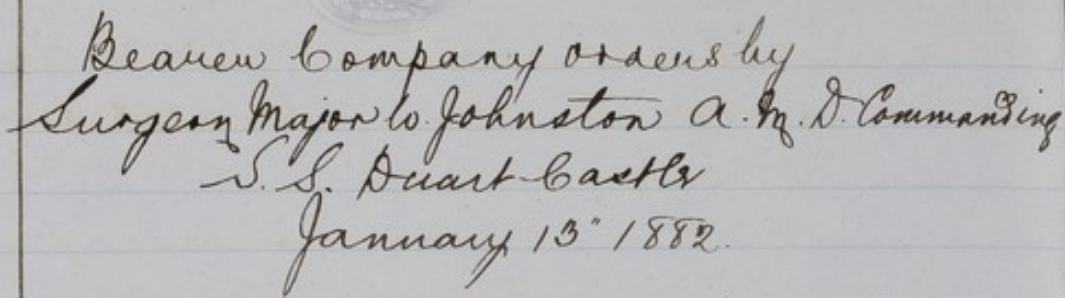 Bearer Company orders by
Surgeon Major W. Johnston A. M. D. Commanding
S. S. Duart Castle
January 13" 1882.